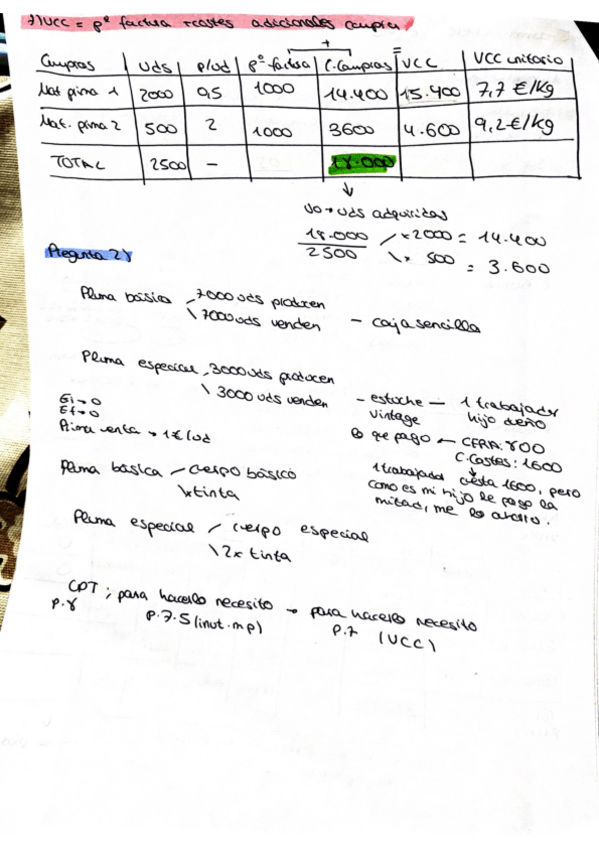 7) VCC = pº factura + costes adicionales compra
+
Compras Uds p/ud pº factura C. Compras = VCC VCC unitario
Mat prima 1 2000 0,5 1000 14.400 15.400 7,7 €/kg
Mat. prima 2 500 2 1000 3600 4.600 9,2 €/kg
TOTAL 2500 - 18.000
Uo → uds adquiridas
18.000 / 2500 × 2000 = 14.400
× 500 = 3.600
Pregunta 2)
Pluma básica 7000 uds producen
7000 uds venden - caja sencilla
Pluma especial 3000 uds producen
3000 uds venden - estuche vintage — 1 trabajador hijo dueño
Ei → 0
Ef → 0
Prima venta → 1€/ud
lo que pago ← CFRA: 800
C. Costes: 1600
1 trabajador cuesta 1600, pero
como es mi hijo le pago la
mitad, me lo ahorro.
Pluma básica / cuerpo básico
1x tinta
Pluma especial / cuerpo especial
2x tinta
CPT; para hacerlo necesito → para hacerlo necesito
p.8 p.7.5 (inut. mp) p.7 (VCC)